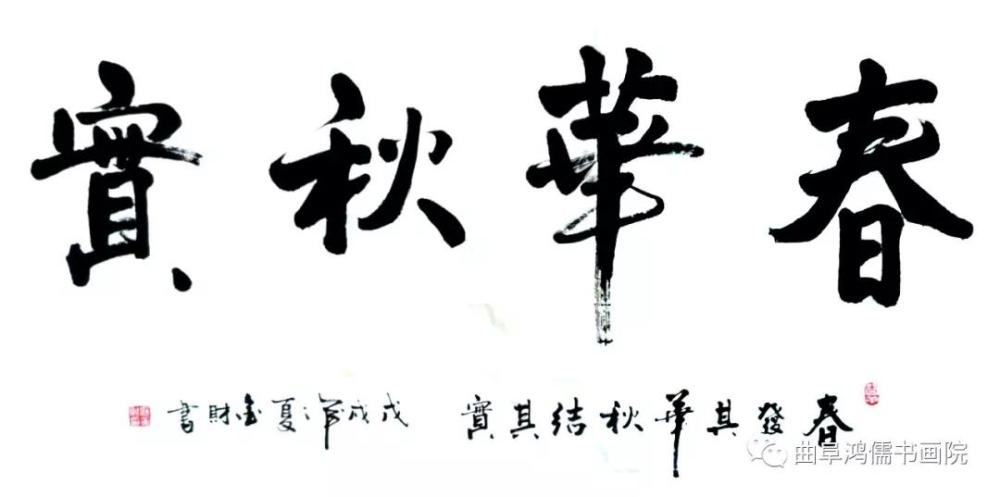 春華秋實
春發其華秋結其實 戊戌年之夏金財書
曲阜鸿儒书画院